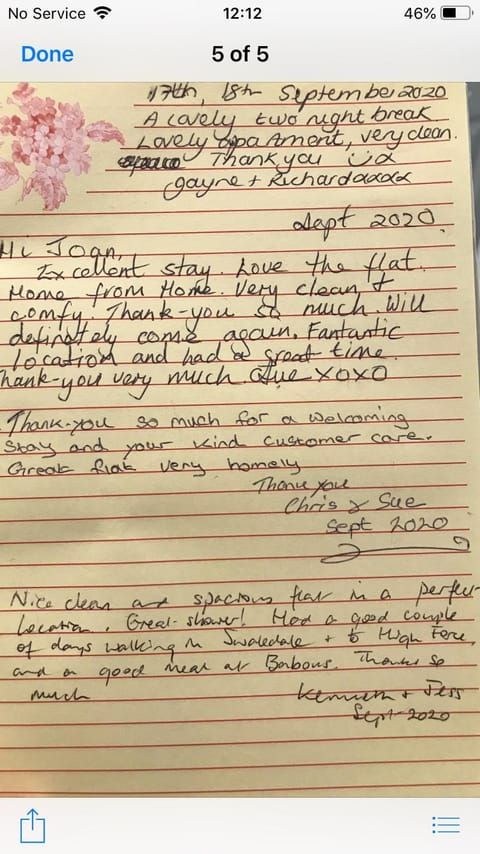 No Service 12:12 46%
Done 5 of 5
17th, 18th September 2020
A Lovely two night break.
Lovely apartment, very clean.
Thank you
Gayne + Richard xxxx
Sept 2020.
Hi Joan,
Excellent stay. Love the flat.
Home from Home. Very clean +
comfy! Thank-you so much. Will
definately come again. Fantastic
location and had a great time.
Thank-you very much. Sue xoxo
Thank-you so much for a welcoming
stay and your kind customer care.
Great flat very homely
Thank you
Chris & Sue
Sept 2020
Nice clean and spacious flat in a perfect
location. Great shower! Had a good couple
of days walking in Swaledale + to High Force,
and a good meal at Barbous. Thanks so
much
Kenneth + Jess
Sept 2020